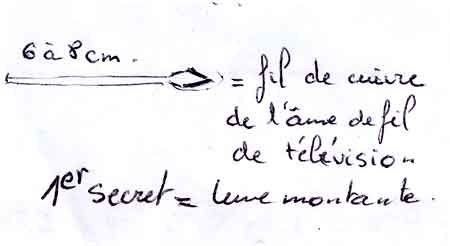 6 à 8 cm.
= fil de cuivre
de l'âme de fil
de télévision
1er secret = lune montante.